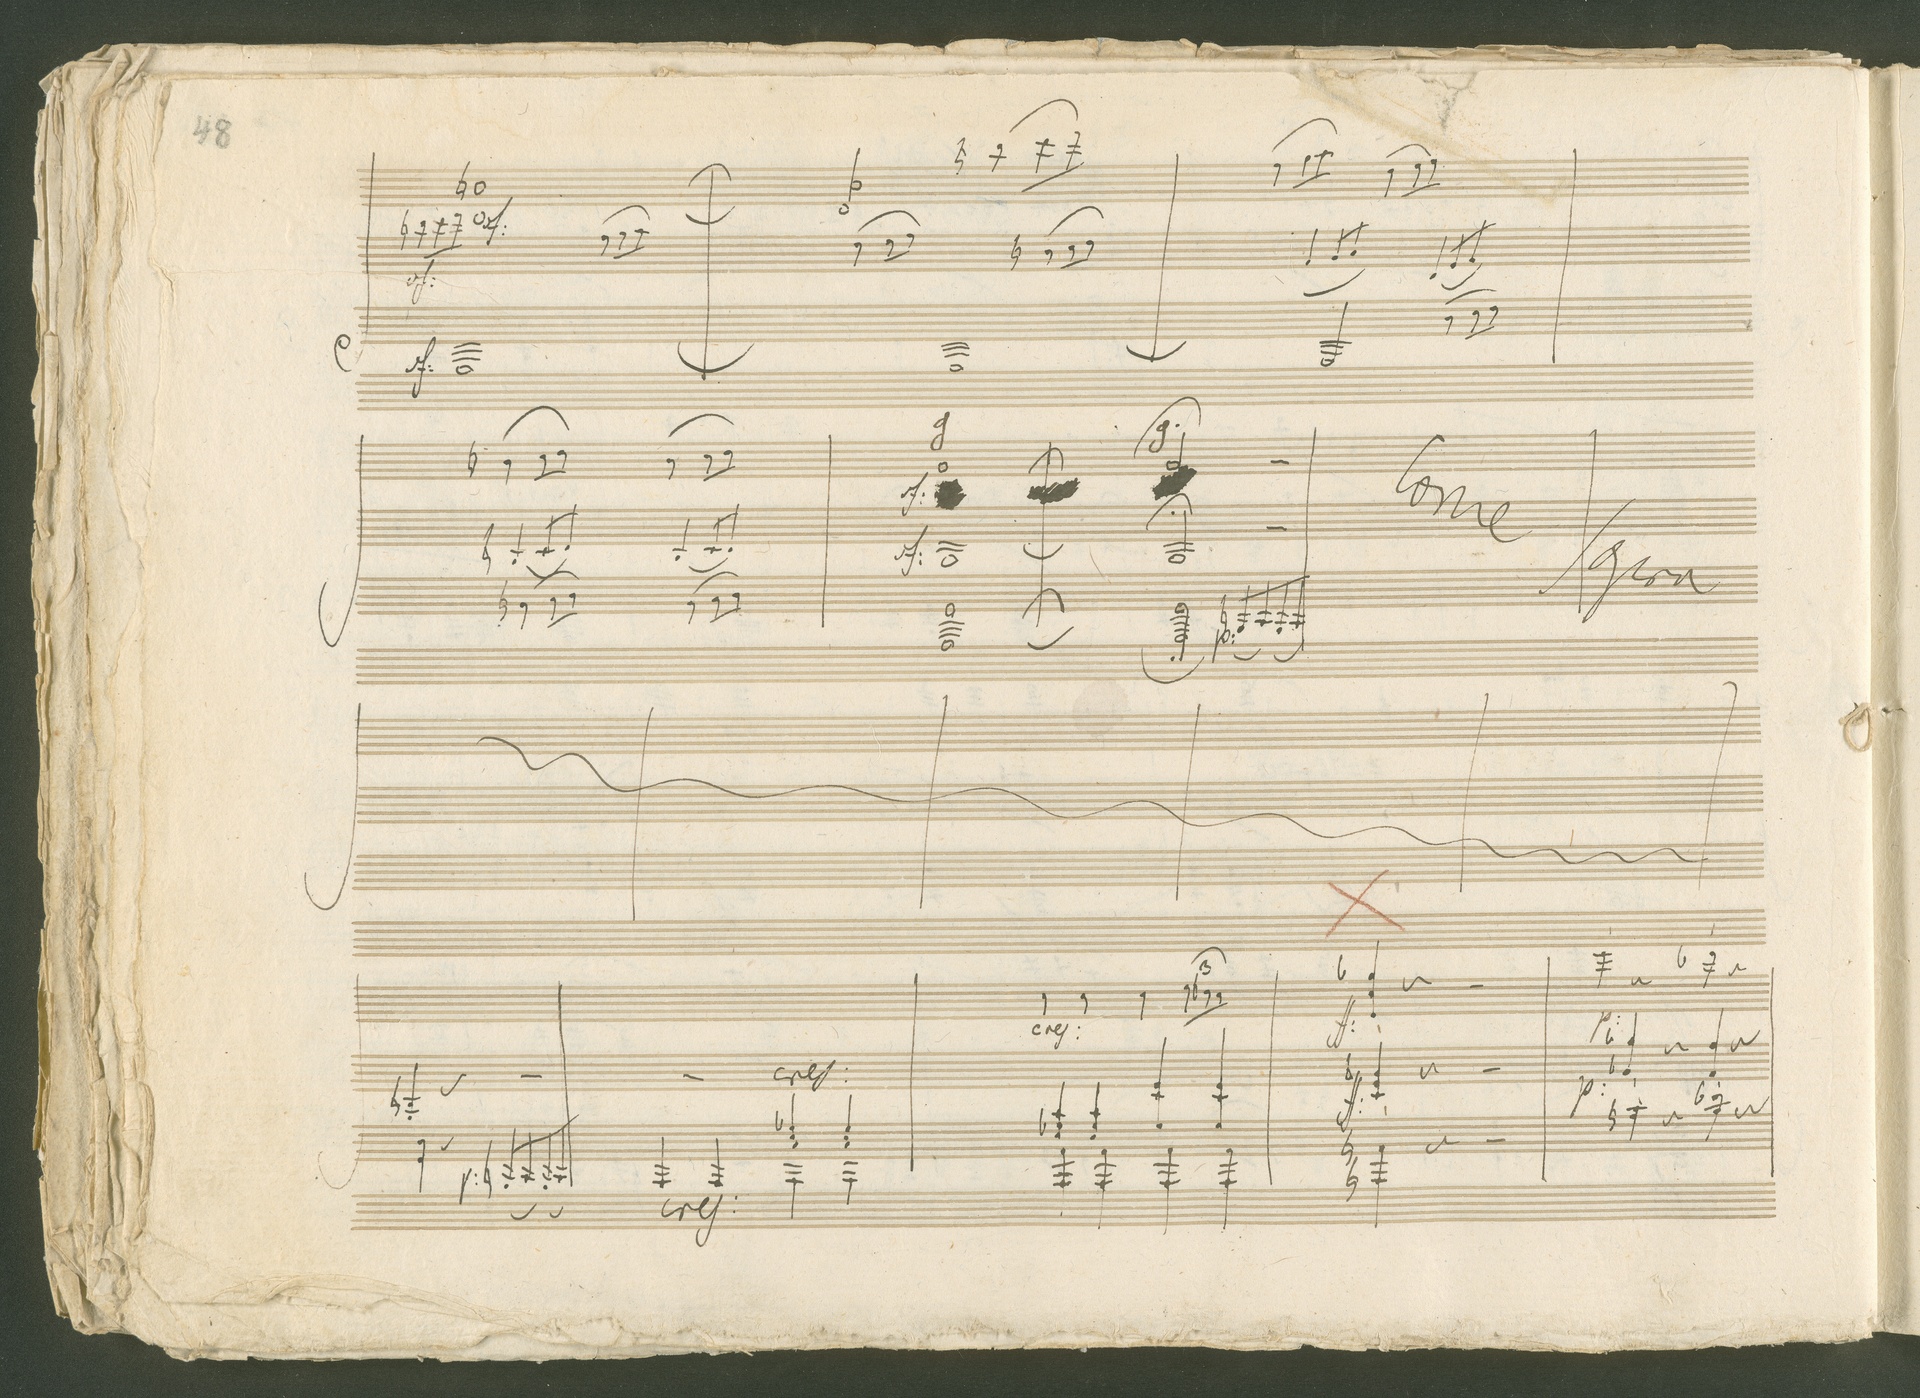 48
sf:
sf:
sf:
sf:
sf:
p:
Come
sopra
3
cres:
ff:
p:
cres:
ff:
p:
p:
cres: